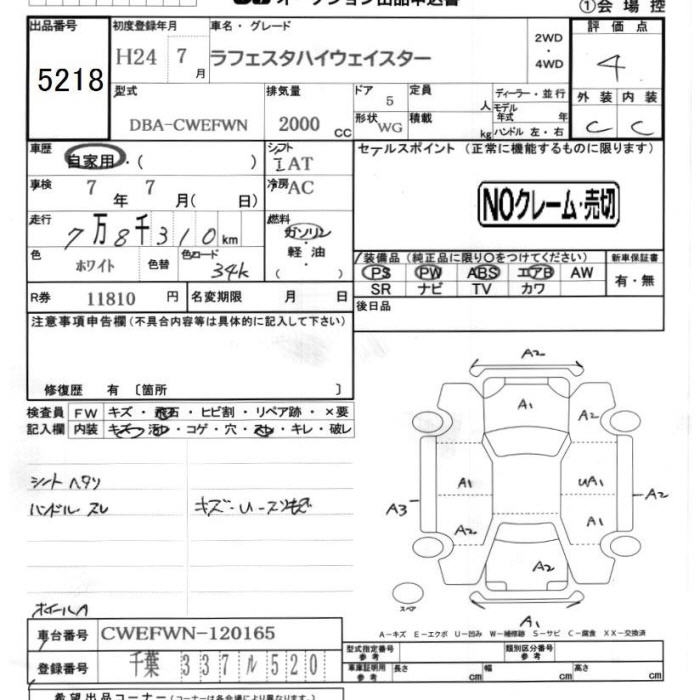 オークション出品申込書
①会場控
出品番号
5218
初度登録年月
H24 7 月
車名・グレード
ラフェスタハイウェイスター
2WD
・
4WD
評価点
4
型式
DBA-CWEFWN
排気量
2000 cc
ドア 5
形状 WG
定員 人
積載 kg
ディーラー・並行
モデル年式 年
ハンドル 左・右
外装 内装
C C
車歴
自家用・( )
シフト
IAT
セールスポイント (正常に機能するものに限ります)
車検 7年 7月( 日)
冷房 AC
NOクレーム・売切
走行 7万8千310km
燃料
ガソリン
軽油
( ・ )
色 ホワイト 色替 色コード 34K
装備品 (純正品に限り○をつけてください)
新車保証書
PS PW ABS エアB AW
有・無
SR ナビ TV カワ
R券 11810 円 名変期限 月 日
後日品
注意事項申告欄(不具合内容等は具体的に記入して下さい)
修復歴 有 〔箇所 〕
検査員 FW キズ・飛石・ヒビ割・リペア跡・×要
記入欄 内装 キズ・汚れ・コゲ・穴・スレ・キレ・破レ
シートヘタリ
ハンドルスレ
ホイールA
A2
A1
A2
A1
UA1
A3
A2
A2
A1
A2
スペア
A1
A-キズ E-エクボ U-凹み W-補修跡 S-サビ C-腐食 XX-交換済
車台番号 CWEFWN-120165
登録番号 千葉 337 ル 520
型式指定番号 参考
類別区分番号 参考
車庫証明用 参考 長さ cm 幅 cm 高さ cm
希望出品コーナー (コーナーは各会場により異なります。)